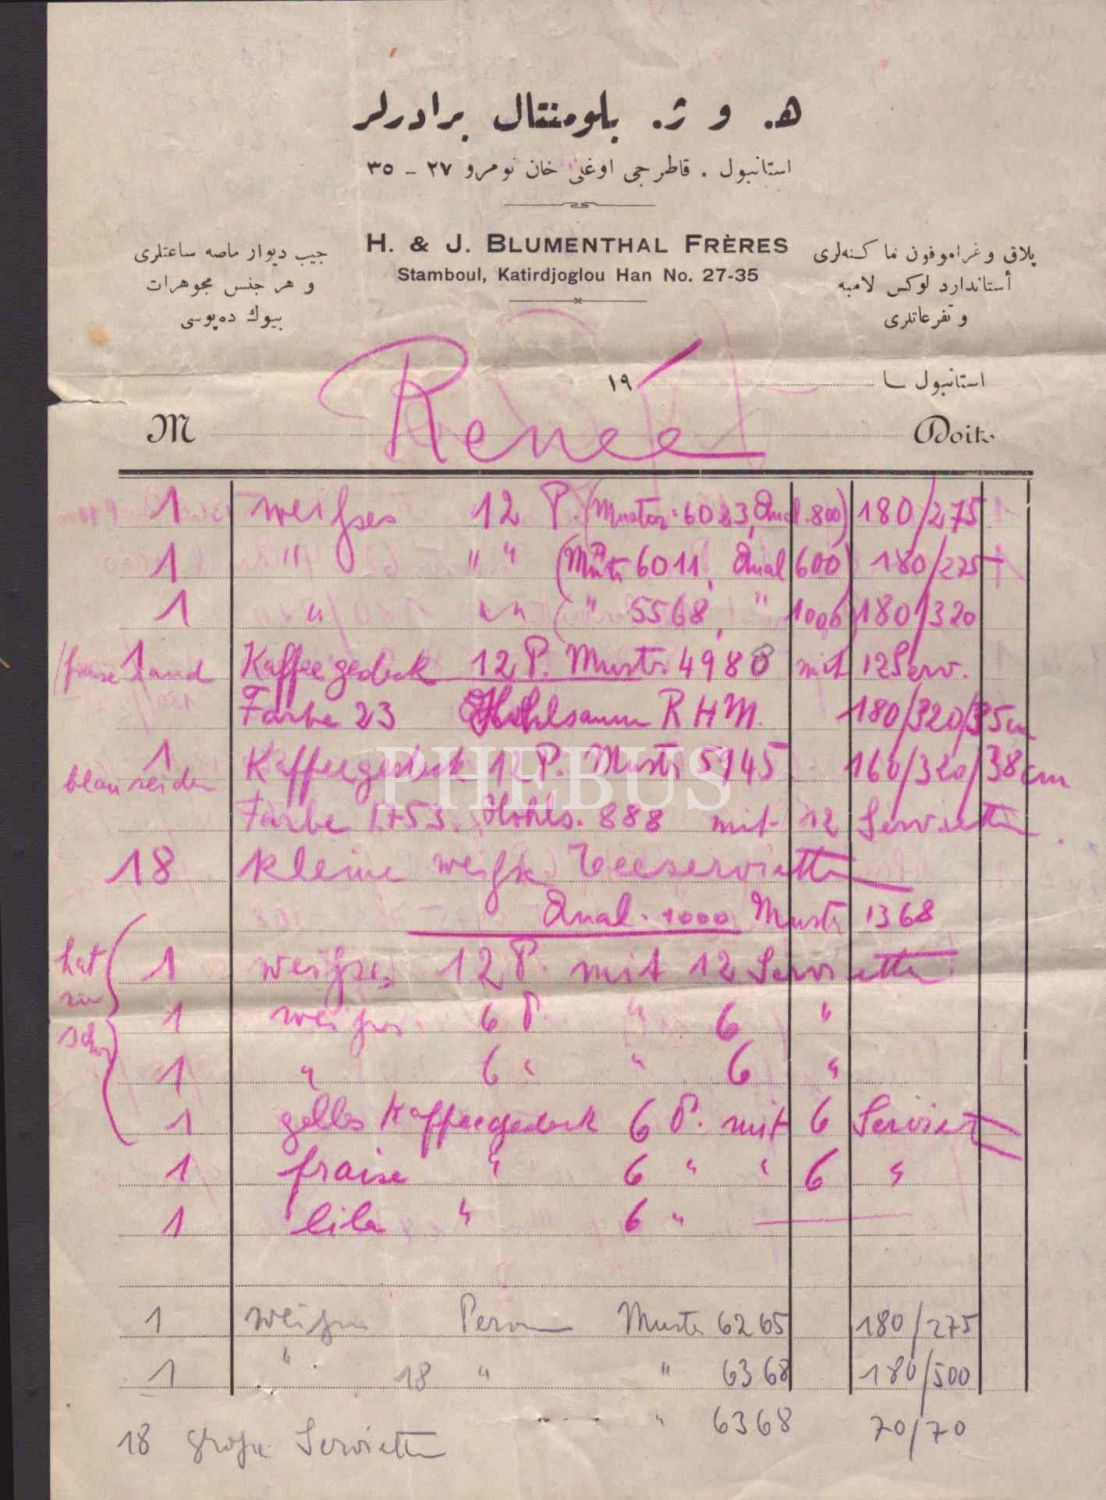 ه‍. و ژ. بلومنتال برادرلر
استانبول . قاطرجی اوغلی خان نومرو ٢٧ - ٣٥
H. & J. BLUMENTHAL FRÈRES
Stamboul, Katirdjoglou Han No. 27-35
جیب دیوار ماصه ساعتلری
و هر جنس مجوهرات
بیوك دەپوسی
پلاق و غراموفون ماكنه‌لری
أستاندارد لوكس لامبه
و تفرعاتلری
استانبول ١٩
M Renée Doit
1 weißes 12 P. (Muster 6023, Qual. 800) 180/275
1 " " " (Muster 6011, Qual 600) 180/275
1 " " " ( " 5568, " 1006) 180/320
1 Kaffeegedeck 12 P. Muster 4980 mit 12 Serv.
fraise
Farbe 23 Hohlsaum RHM. 180/320/35cm
1 Kaffeegedeck 12 P. Muster 5945 160/320/38cm
blau seiden
Farbe 1753. Hohls. 888 mit 12 Servietten
18 kleine weiße Teeservietten
Qual. 1000 Muster 1368
hat
sie
schon
1 weißes 12 P. mit 12 Servietten
1 weißes 6 P. " 6 "
1 " 6 " " 6 "
1 gelbes Kaffeegedeck 6 P. mit 6 Serviett
1 fraise " 6 " " 6 "
1 lila " 6 "
1 weißes Person Muster 6265 180/275
1 " 18 " " 6368 180/500
18 große Servietten " 6368 70/70
PHEBUS